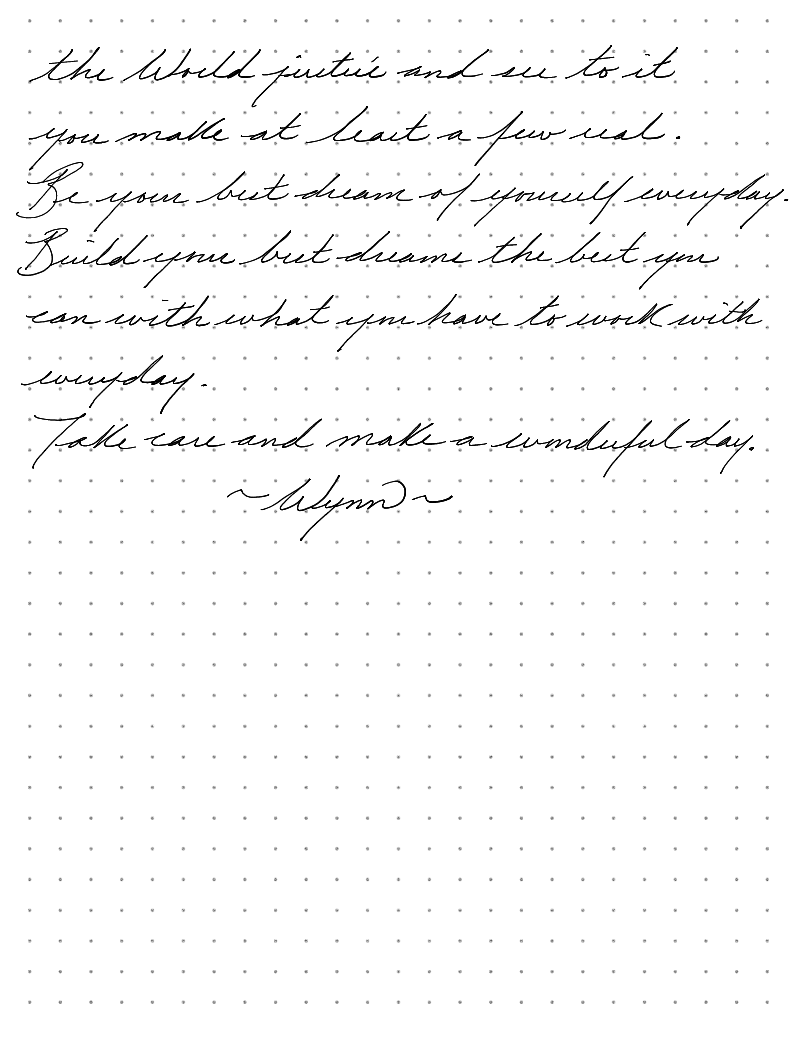 the World justice and see to it
you make at least a few real.
Be your best dream of yourself everyday.
Build your best dreams the best you
can with what you have to work with
everyday.
Take care and make a wonderful day.
~Wynn~